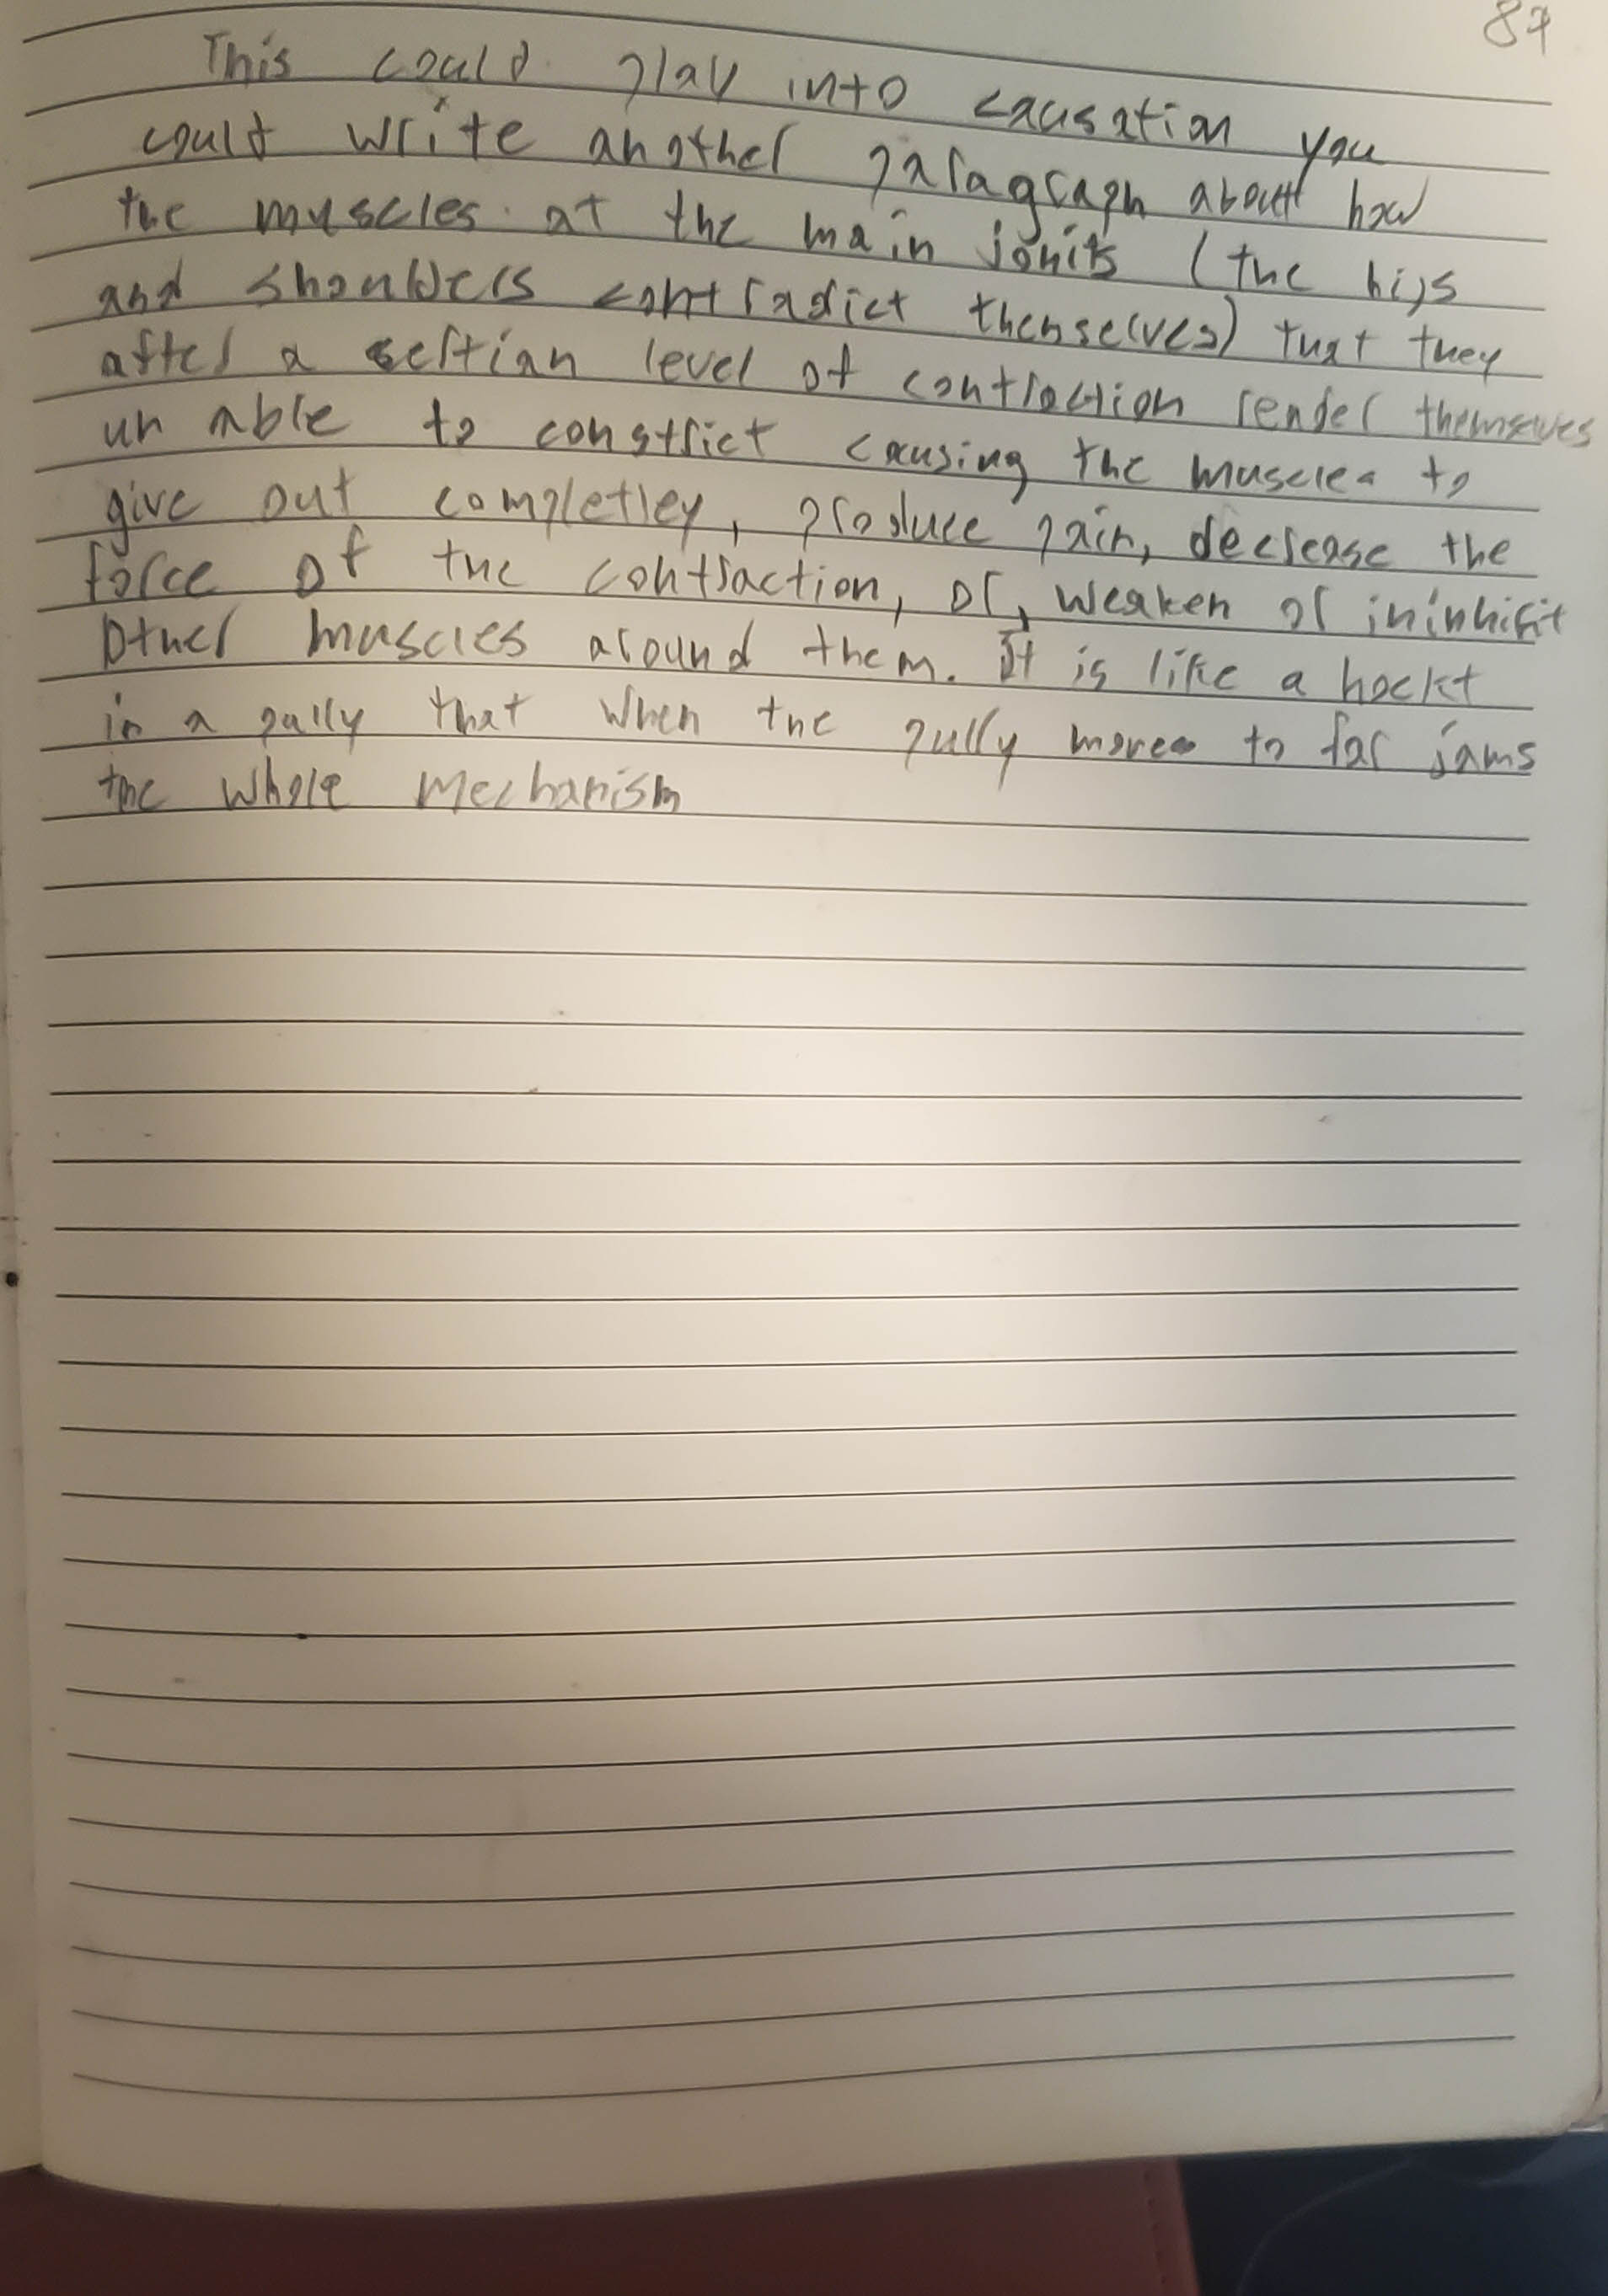 87
This could play into causation you
could write another paragraph about how
the muscles at the main jonits (the hips
and shoulders contradict themselves) that they
after a sertian level of contraction render themselves
un able to constrict causing the muscles to
give out completley, produce pain, decrease the
force of the contraction, or, weaken or ininhibit
other muscles around them. It is like a
in a pully that when the pully moves to far jams
the whole mechanism